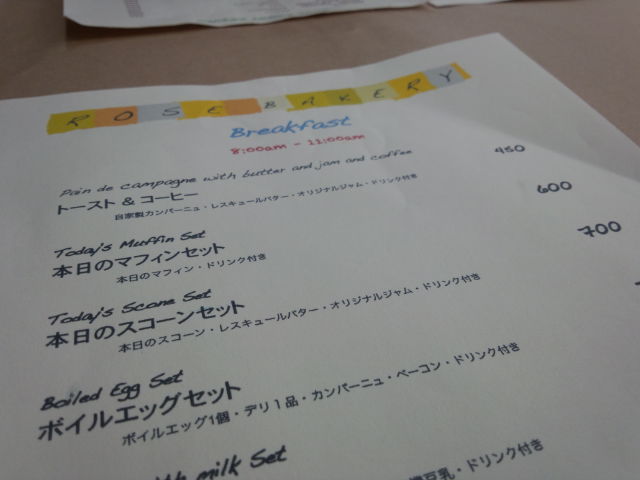 ROSE BAKERY
Breakfast
8:00am - 11:00am
Pain de campagne with butter and jam and coffee 450
トースト & コーヒー
自家製カンパーニュ・レスキュールバター・オリジナルジャム・ドリンク付き
Today's Muffin Set 600
本日のマフィンセット
本日のマフィン・ドリンク付き
Today's Scone Set 700
本日のスコーンセット
本日のスコーン・レスキュールバター・オリジナルジャム・ドリンク付き
Boiled Egg Set
ボイルエッグセット
ボイルエッグ1個・デリ1品・カンパーニュ・ベーコン・ドリンク付き
milk Set
豆乳・ドリンク付き